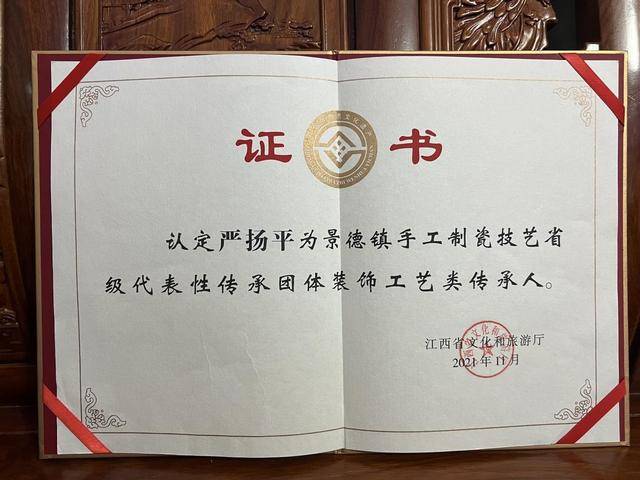 证书
认定严扬平为景德镇手工制瓷技艺省
级代表性传承团体装饰工艺类传承人。
江西省文化和旅游厅
2021年11月